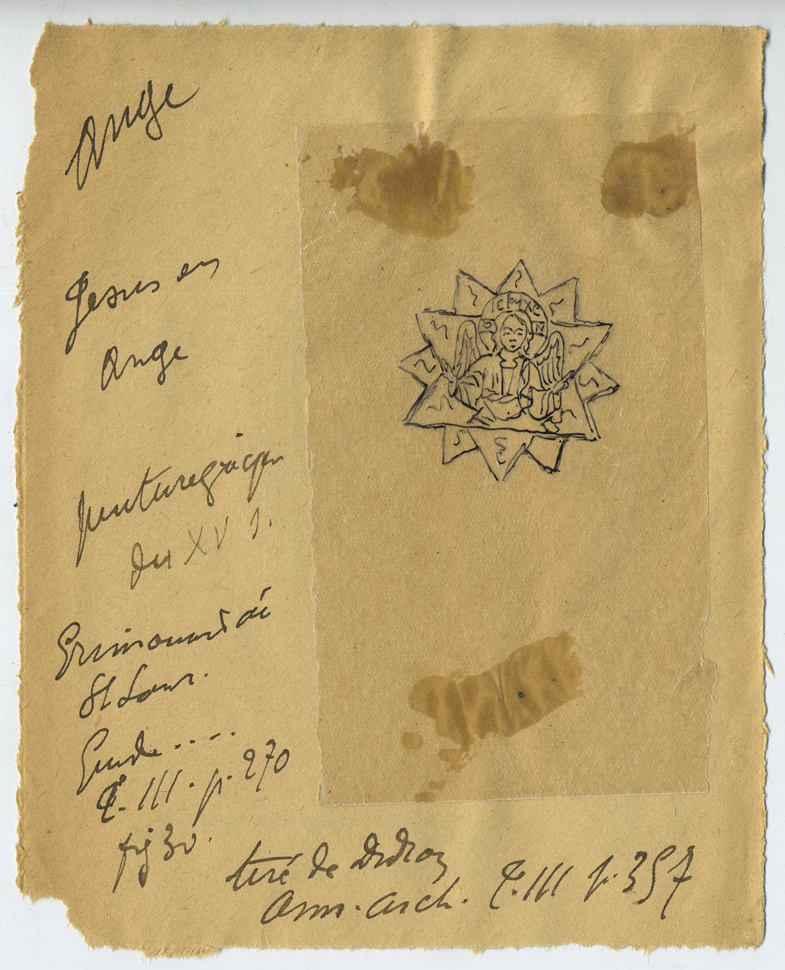 Ange
Jesus en
Ange
peinture grecque
du XV s.
Grimouard de
St Laur.
Guide ....
T. III. p. 270
fig 30.
tiré de Didron
Ann. arch. T. III p. 357